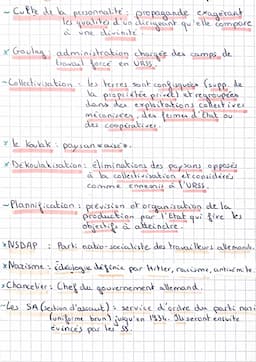 ~ Culte de la personnalité : propagande exagérant
les qualités d'un dirigeant qu'elle compare
à une divinité
* Goulag : administration chargée des camps de
travail forcé en URSS.
~ Collectivisation : les terres sont confisquées (supp. de
la propriété privée) et regroupées
dans des exploitations collectives
mécanisées, des fermes d'Etat ou
des coopératives.
* le koulak : paysan "aisé".
* Dékoulakisation : éliminations des paysans opposés
à la collectivisation et considérés
comme ennemis à l'URSS.
~ Plannification : prévision et organisation de la
production par l'Etat qui fixe les
objectifs à atteindre.
* NSDAP : Parti natio-socialiste des travailleurs allemands.
* Nazisme : idéologie définie par Hitler, racisme, antisémite.
* Chancelier : Chef du gouvernement allemand.
~ Les SA (section d'assaut) : service d'ordre du parti nazi
(uniforme brun) jusqu'en 1934. Ils seront ensuite
évincés par les SS.